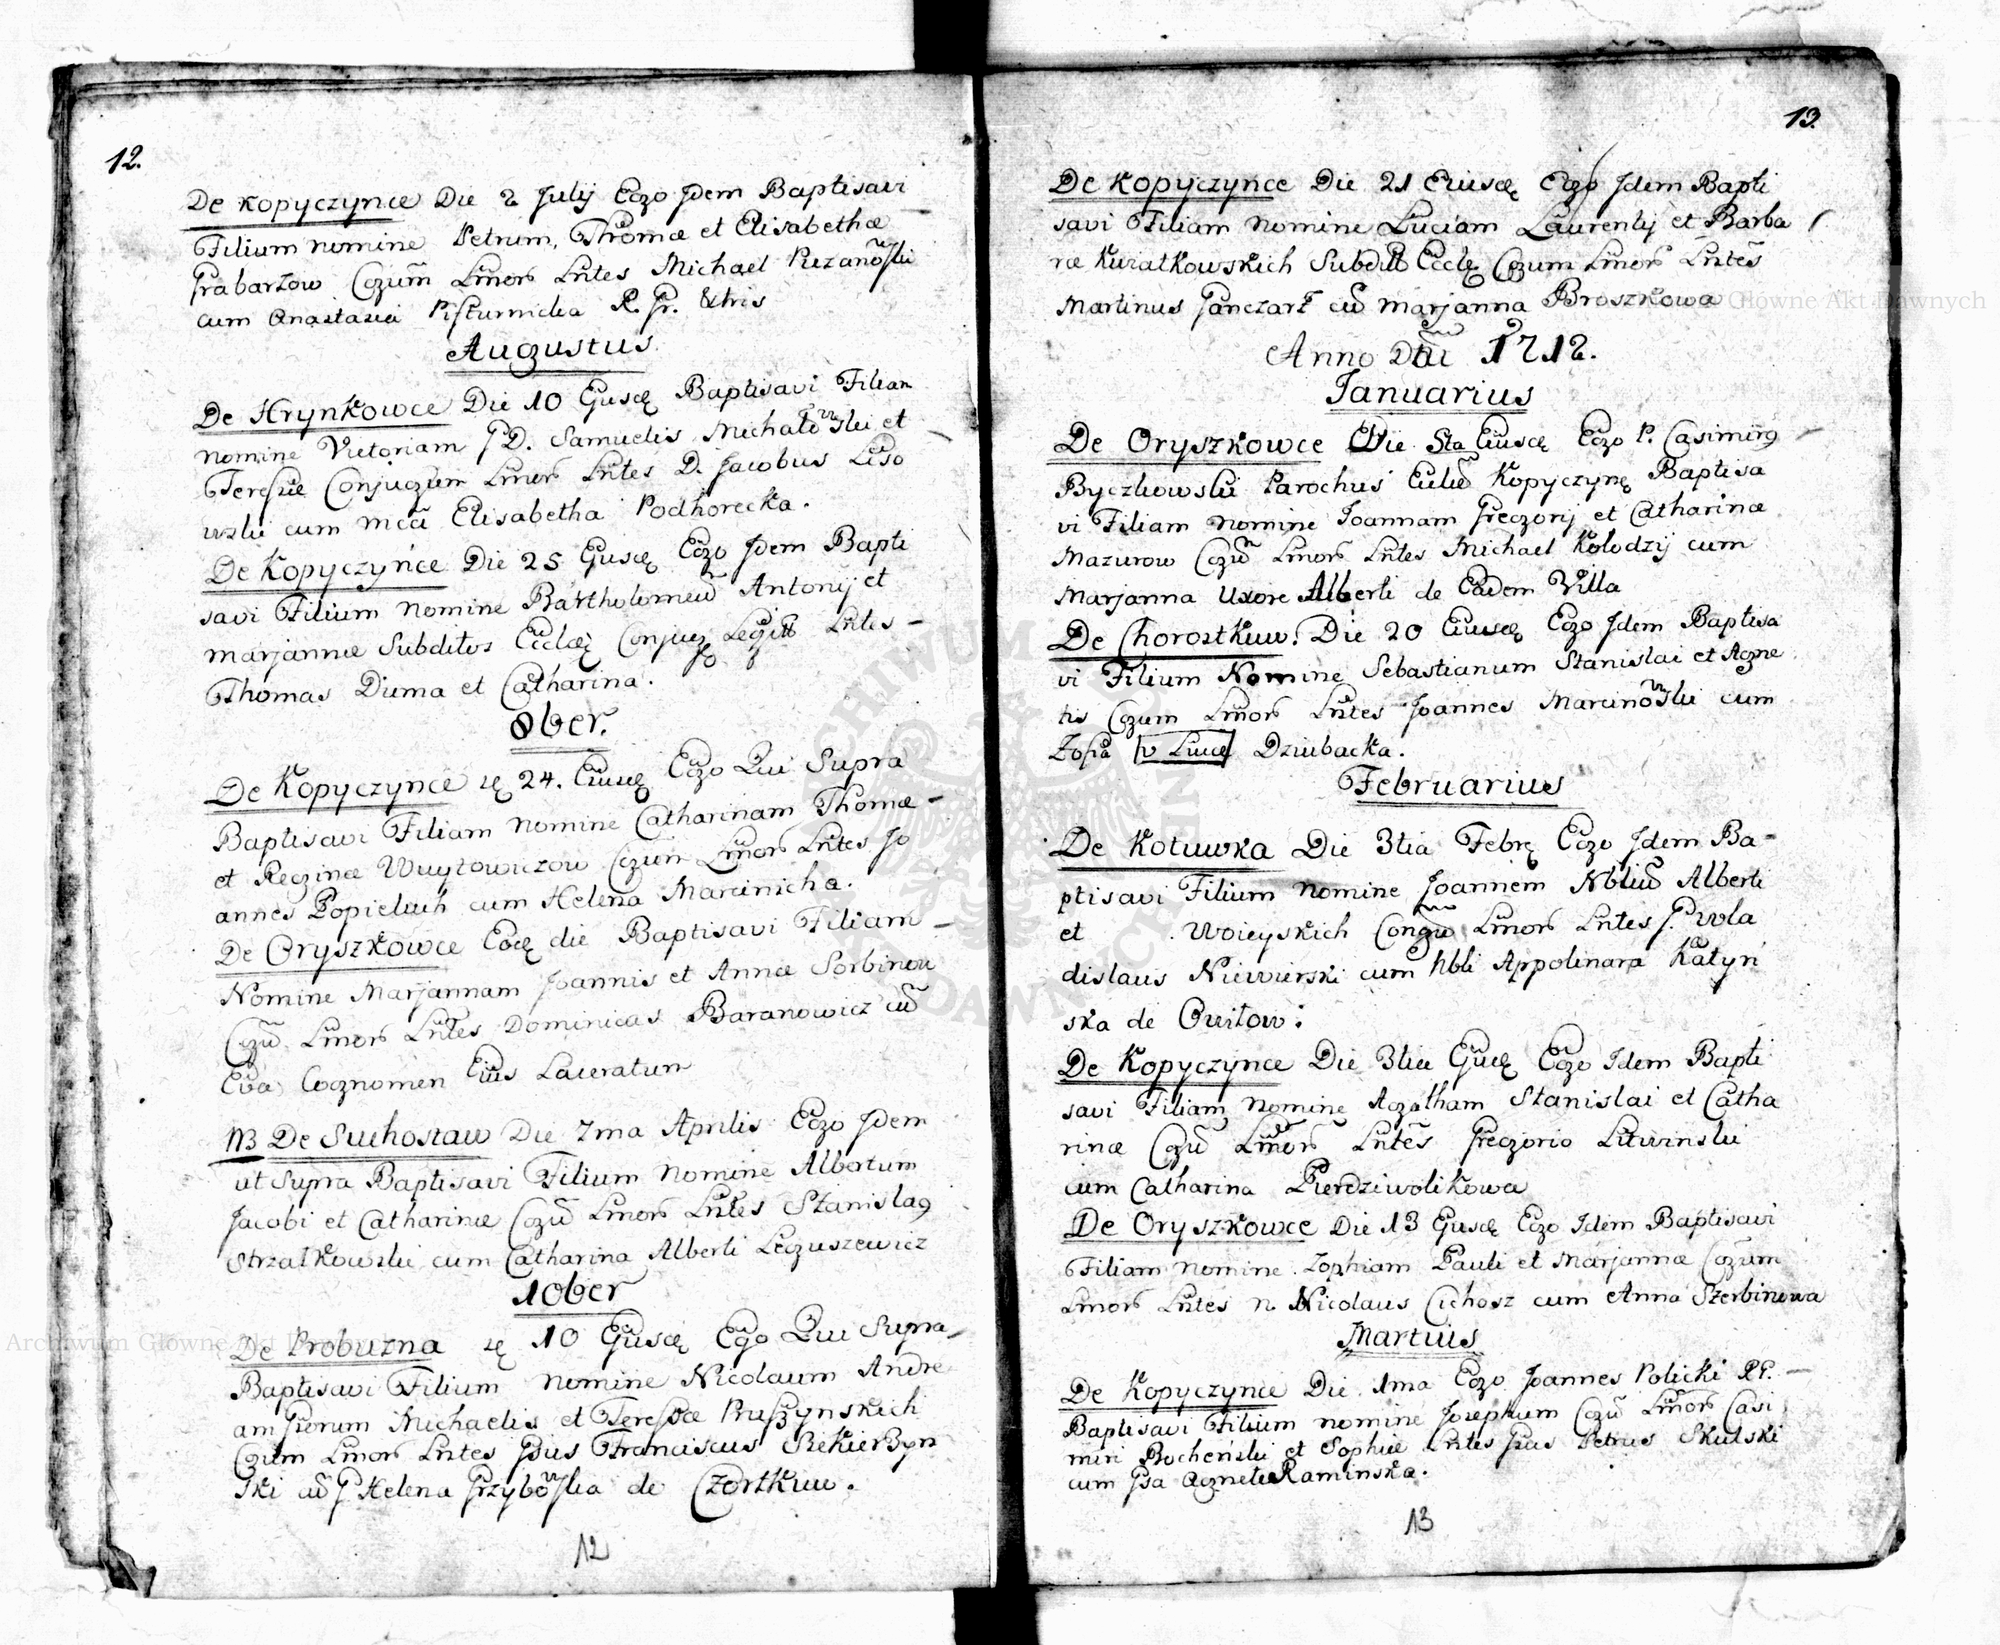 12.
De Kopyczynce Die 2 Julij Ego Jdem Baptisavi
Filium nomine Petrum, Thomæ et Elisabethæ
Grabarzow Cgzum Lmor Lntes Michael
cum Anastasia R. Gr. Utris
Augustus
De Hrynkowce Die 10 Ejuscę Baptisavi Filiam
nomine Victoriam GD. Samuelis et
Teresiæ Conjugum Lmor Lntes D. Jacobus Liso
wski cum Elisabetha Podhorecka.
De Kopyczynce Die 25 Ejuscę Ego Jdem Bapti
savi Filium nomine Bartholomeu Antonij et
marjannæ Subditor Ecclæ Conjug Legit Lntes -
Thomas Duma et Catharina.
8ber.
De Kopyczynce 24. Eiuscę Ego Qui Supra
Baptisavi Filiam nomine Catharinam Thomæ -
et Reginæ Wuytowiczow Cgzum Lmor Lntes Jo
annes Popieluch cum Helena Marcinicha.
De Oryszkowce Eoę die Baptisavi Filiam -
Nomine Marjannam Joannis et Annæ Sorbinow
Cgzu Lmor Lntes Dominicas Baranowicz cu
Eva Cognomen Eius Laceratum
NB De Suchostaw Die 7ma Aprilis Ego Jdem
ut Supra Baptisavi Filium Nomine Albertum
Jacobi et Catharinæ Cgzu Lmor Lntes Stanislag
Strzalkowski cum Catharina Alberti Leguszewicz
10ber
De Probuzna 10 Ejuscę Ego Qui Supra
Baptisavi Filium nomine Nicolaum Andre
am Grorum Michaelis et Teresiæ Pruszynskich
Cgzum Lmor Lntes Gsus Franciscus Siekierzyn
ski cu G Helena de Czortkuw.
12
13.
De Kopyczynce Die 21 Eiuscę Ego Jdem Bapti
savi Filiam nomine Luciam Laurentij et Barba
ræ Kwiatkowskich Subdit Eccle Cgzum Lmor Lntes
Martinus Ganczarz cu Marjanna Broszkowa
Anno Dni 1712.
Ianuarius
De Oryszkowce Die Sta Eiuscę Ego P. Casimirg
Byczkowski Parochus Kopyczynę Baptisa
vi Filiam nomine Joannam Gregorij et Catharinæ
Mazurow Cgzu Lmor Lntes Michael Kolodzij cum
Marjanna Uxore Alberti de Eadem Villa
De Chorostkuw. Die 20 Eiuscę Ego Jdem Baptisa
vi Filium Nomine Sebastianum Stanislai et Agne
tis Cgzum Lmor Lntes Joannes Marcinowski cum
Zofia Dziubacka.
Februarius
De Kotuwka Die 3tia Febrę Ego Jdem Ba-
ptisavi Filium nomine Joannem Nbliu Alberti
et Woieyskich Congu Lmor Lntes G. Wla
dislaus Niewierski cum Nbli Appolinara Katyń
ska de Owitow:
De Kopyczynce Die 3tia Ejuscę Ego Idem Bapti
savi Filiam nomine Agatham Stanislai et Catha
rinæ Cgzu Lmor Lntes Gregorio Litwinski
cum Catharina Pierdziwolikowa
De Oryszkowce Die 13 Ejuscę Ego Idem Baptisavi
Filiam nomine Zophiam Pauli et Marjannæ Cgzum
Lmor Lntes n. Nicolaus Cichosz cum Anna Szerbinowa
Martius
De Kopyczynce Die 1ma Ego Joannes Policki PP. -
Baptisavi Filium nomine Josephum Cgzu Lmor Casi
miri Bocheński et Sophiæ Lntes Gsus Petrus Skulski
cum Gsa Agnete Kaminska.
13
Archiwum Główne Akt Dawnych